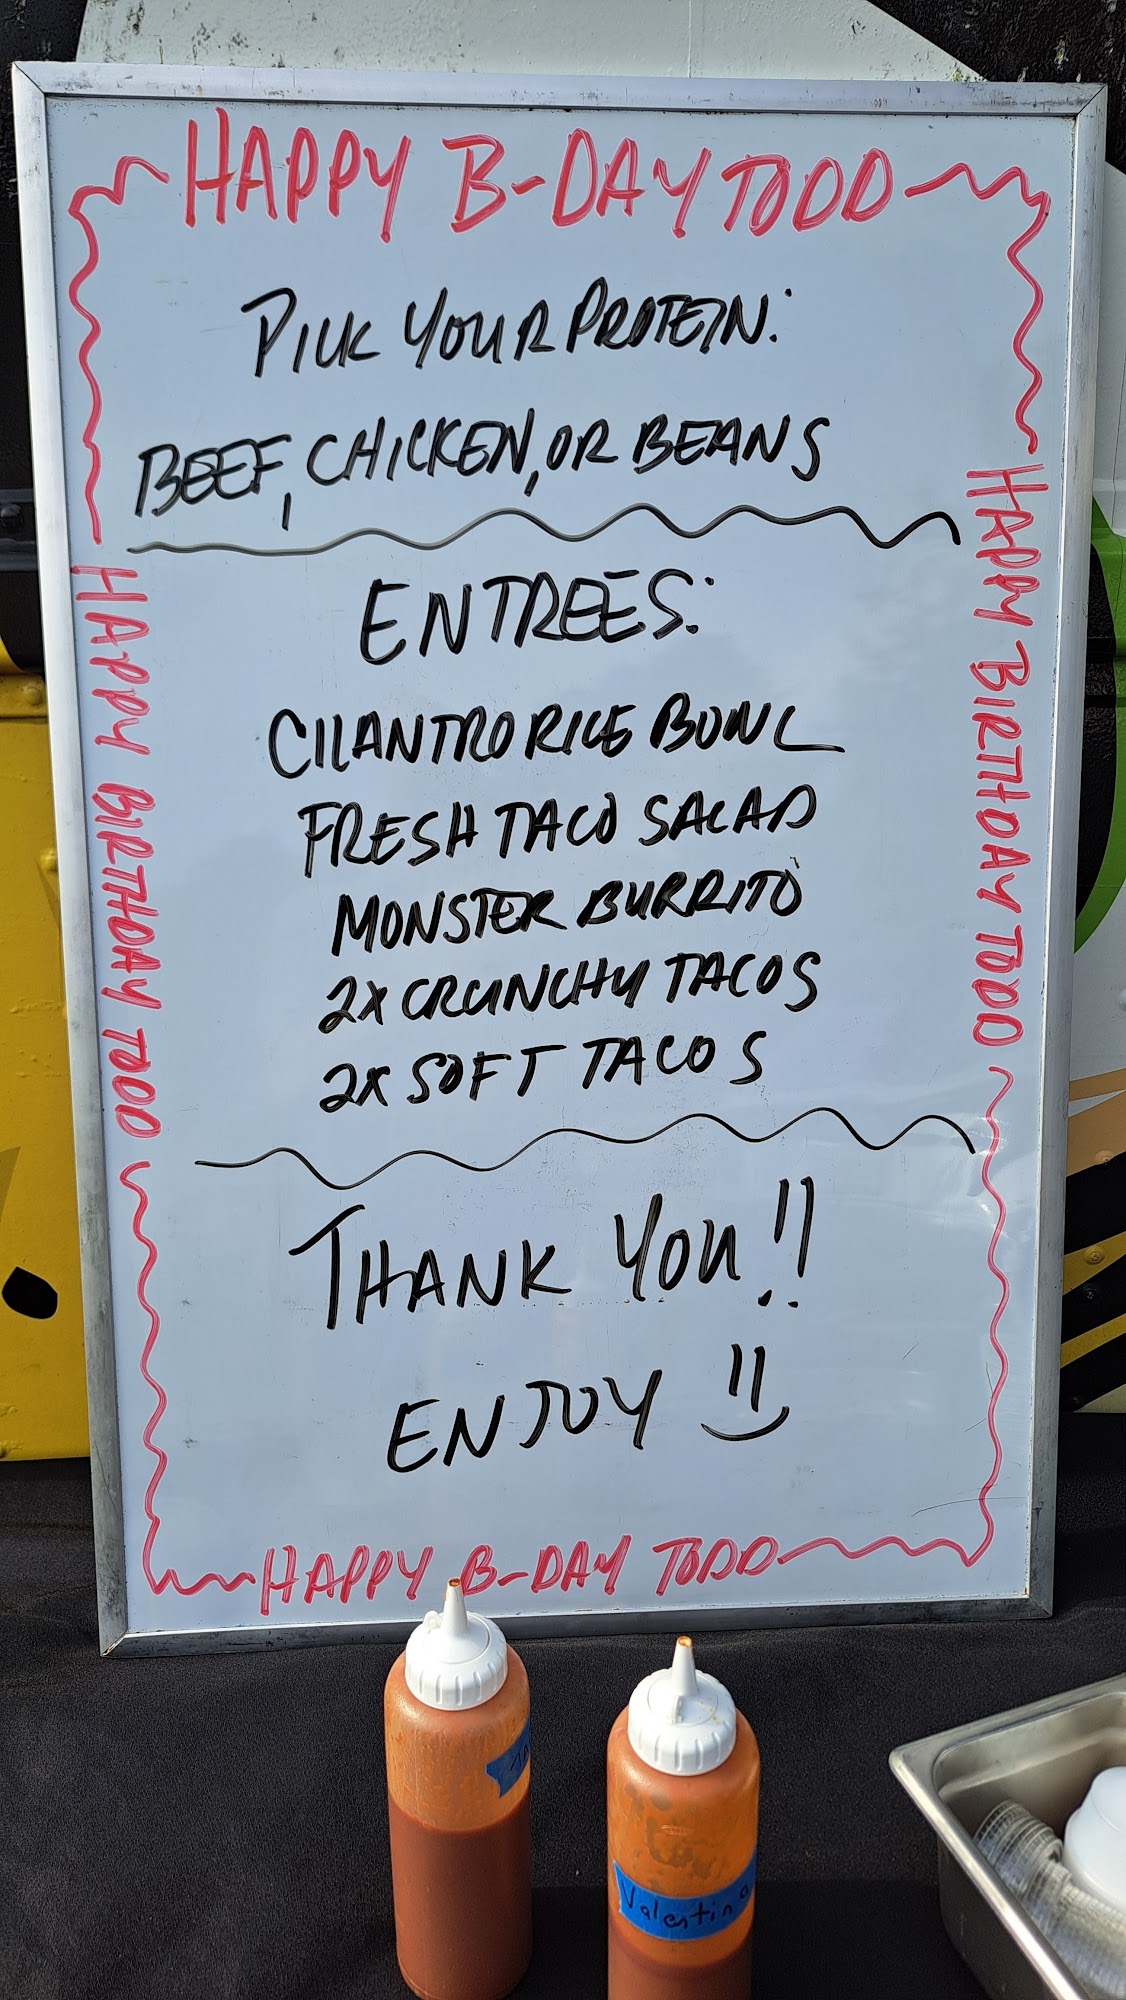 HAPPY B-DAY TODD
PICK YOUR PROTEIN:
BEEF, CHICKEN, OR BEANS
ENTREES:
CILANTRO RICE BOWL
FRESH TACO SALAD
MONSTER BURRITO
2X CRUNCHY TACOS
2X SOFT TACOS
THANK YOU!!
ENJOY
HAPPY BIRTHDAY TODD
HAPPY BIRTHDAY TODD
HAPPY B-DAY TODD
Valentina